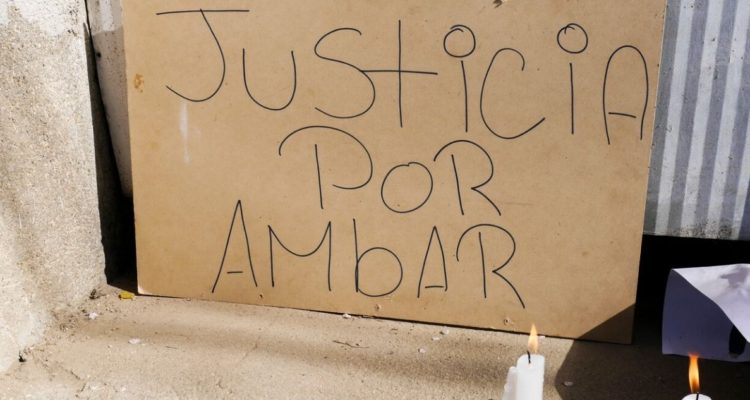 JUSTICIA
POR
AMbAR